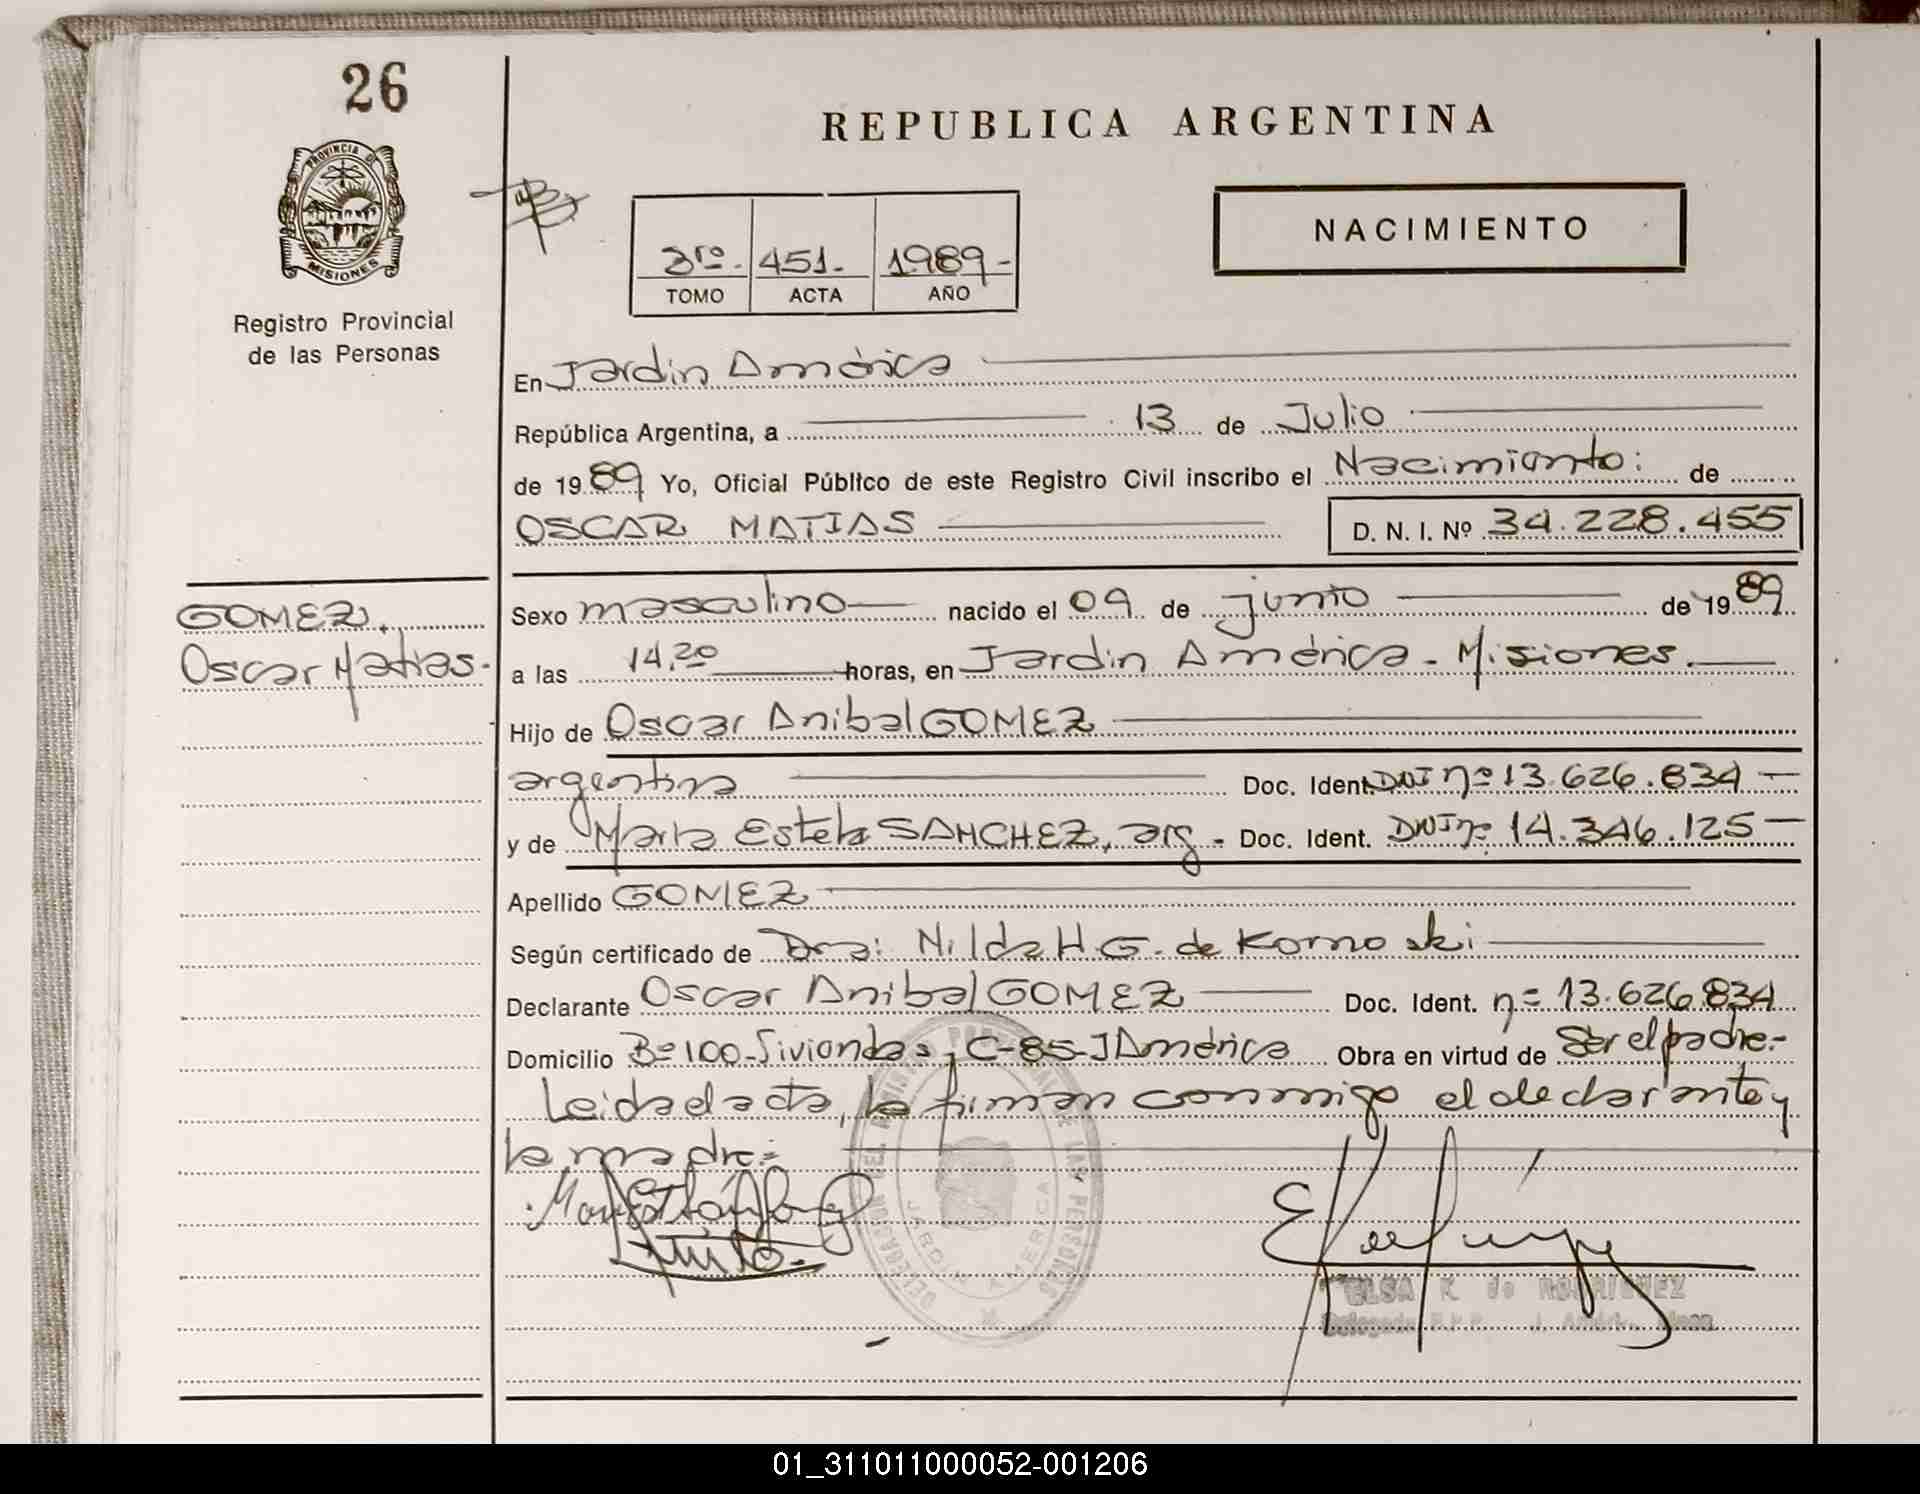 26
REPUBLICA ARGENTINA
PROVINCIA DE
MISIONES
Registro Provincial
de las Personas
3ro.- 451.- 1989-
TOMO ACTA AÑO
NACIMIENTO
En Jardin América
República Argentina, a 13 de Julio
de 1989 Yo, Oficial Público de este Registro Civil inscribo el Nacimiento: de
OSCAR MATIAS D. N. I. Nº 34.228.455
GOMEZ.
Oscar Matias.-
Sexo masculino nacido el 09 de junio de 1989
a las 14,20 horas, en Jardin América - Misiones.
Hijo de Oscar Anibal GOMEZ
argentina Doc. Ident. DNI nº 13.626.834
y de Maria Estela SANCHEZ, arg.- Doc. Ident. DNI nº 14.346.125
Apellido GOMEZ
Según certificado de Dra: Nilda H. G. de Kornoski
Declarante Oscar Anibal GOMEZ Doc. Ident. nº 13.626.834
Domicilio Bº 100-Viviendas, C-85-J América Obra en virtud de Ser el padre.-
Leida el acta, la firman conmigo el declarante y
la madre.=
DELEGACION DEL REGISTRO PROVINCIAL DE LAS PERSONAS
JARDIN AMERICA
ELSA K. de RODRIGUEZ
Delegada R.P.P. J. América, Mnes
01_311011000052-001206